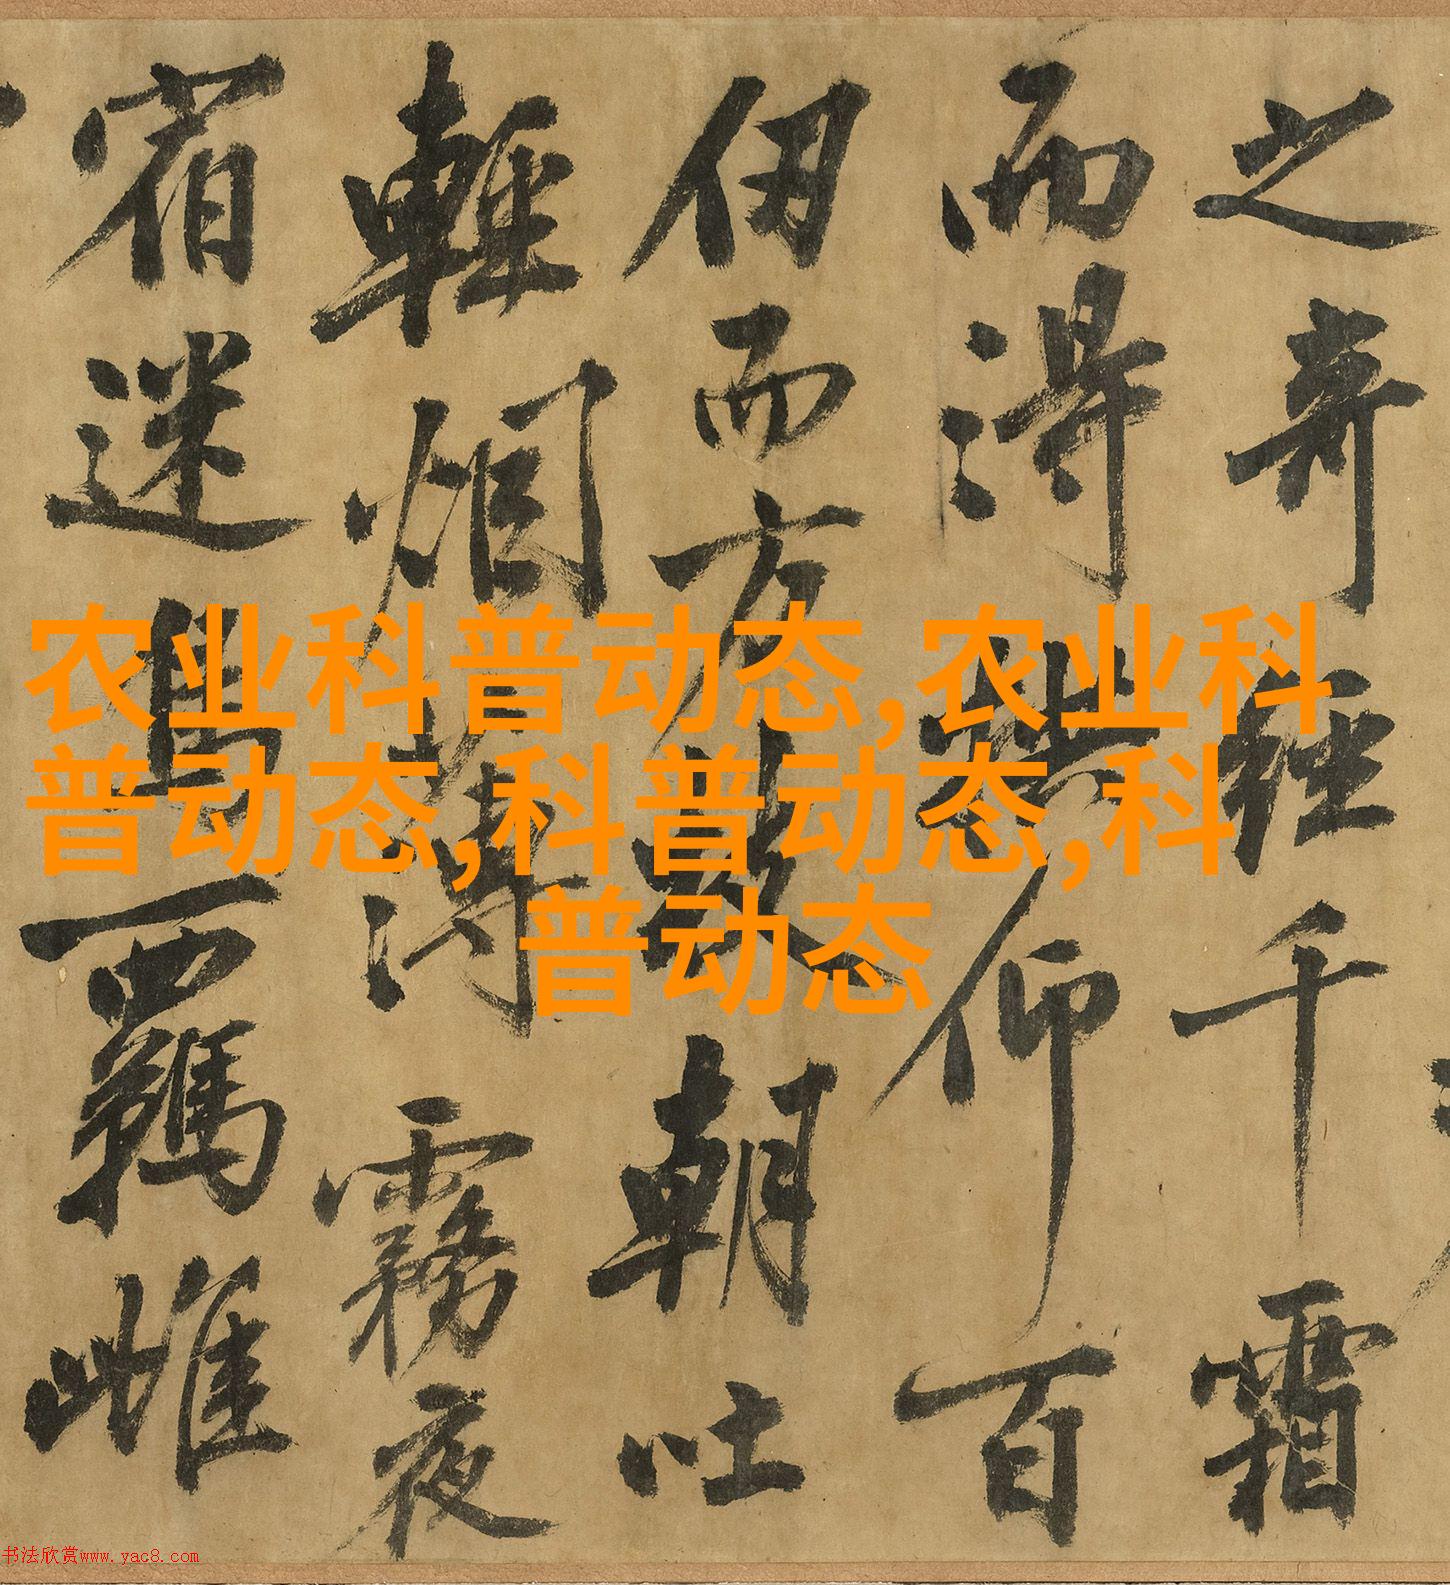 之奇經千霜
而得拱仰百
仞而方枝朝吐
輕烟薄霧夜
宿迷鳥羈雌
农业科普动态,农业科
普动态,科普动态,科
普动态
书法欣赏www.yac8.com